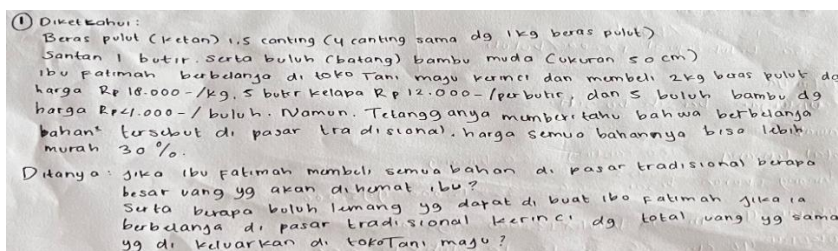 ① Diketkahui :
Beras pulut (ketan) 1,5 canting (4 canting sama dg 1 kg beras pulut)
Santan 1 butir. serta buluh (batang) bambu muda (ukuran 50 cm)
ibu Fatimah berbelanja di toko Tani maju kerinci dan membeli 2kg beras pulut dg
harga Rp 18.000-/kg, 5 butir kelapa Rp 12.000-/perbutir, dan 5 buluh bambu dg
harga Rp 4.000-/buluh. Namun. Tetangganya memberitahu bahwa berbelanja
bahan² tersebut di pasar tradisional. harga semua bahannya bisa lebih
murah 30%.
Ditanya : jika ibu Fatimah membeli semua bahan di pasar tradisional berapa
besar uang yg akan dihemat ibu?
Serta berapa buluh lemang yg dapat di buat ibo Fatimah jika ia
berbelanja di pasar tradisional kerinci dg total uang yg sama
yg di keluarkan di toko Tani maju?